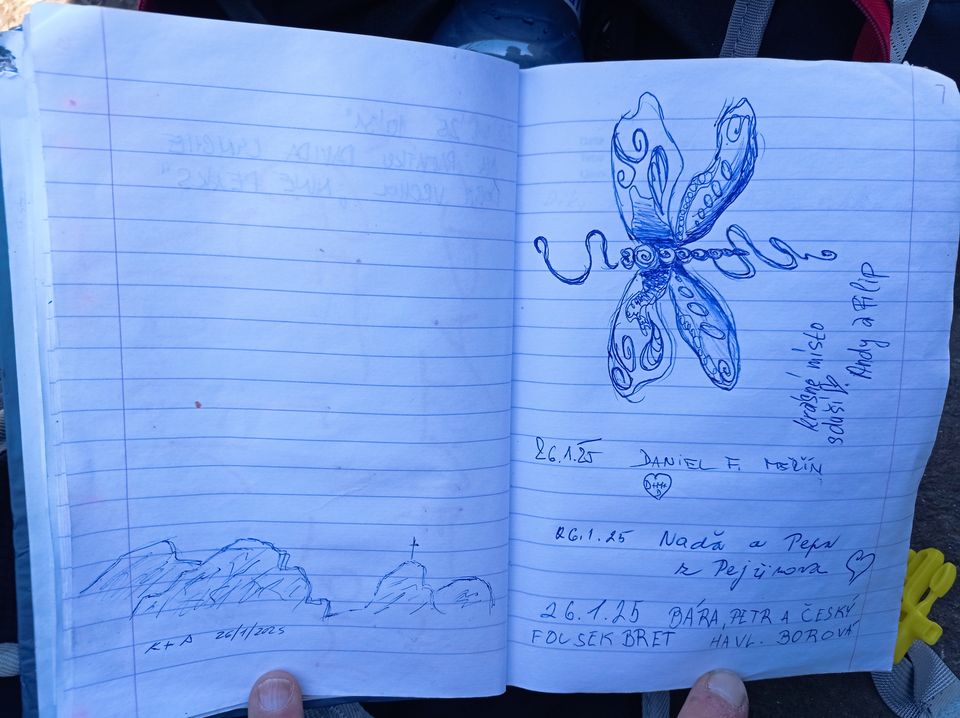 K + A 26/1/2025
krásné místo
s duší
Andy a Filip
26.1.25 DANIEL F. MEŘÍN
26.1.25 Naďa a Pepa
z
26.1.25 BÁRA, PETR A ČESKÝ
FOUSEK BRET HAVL. BOROVÁ